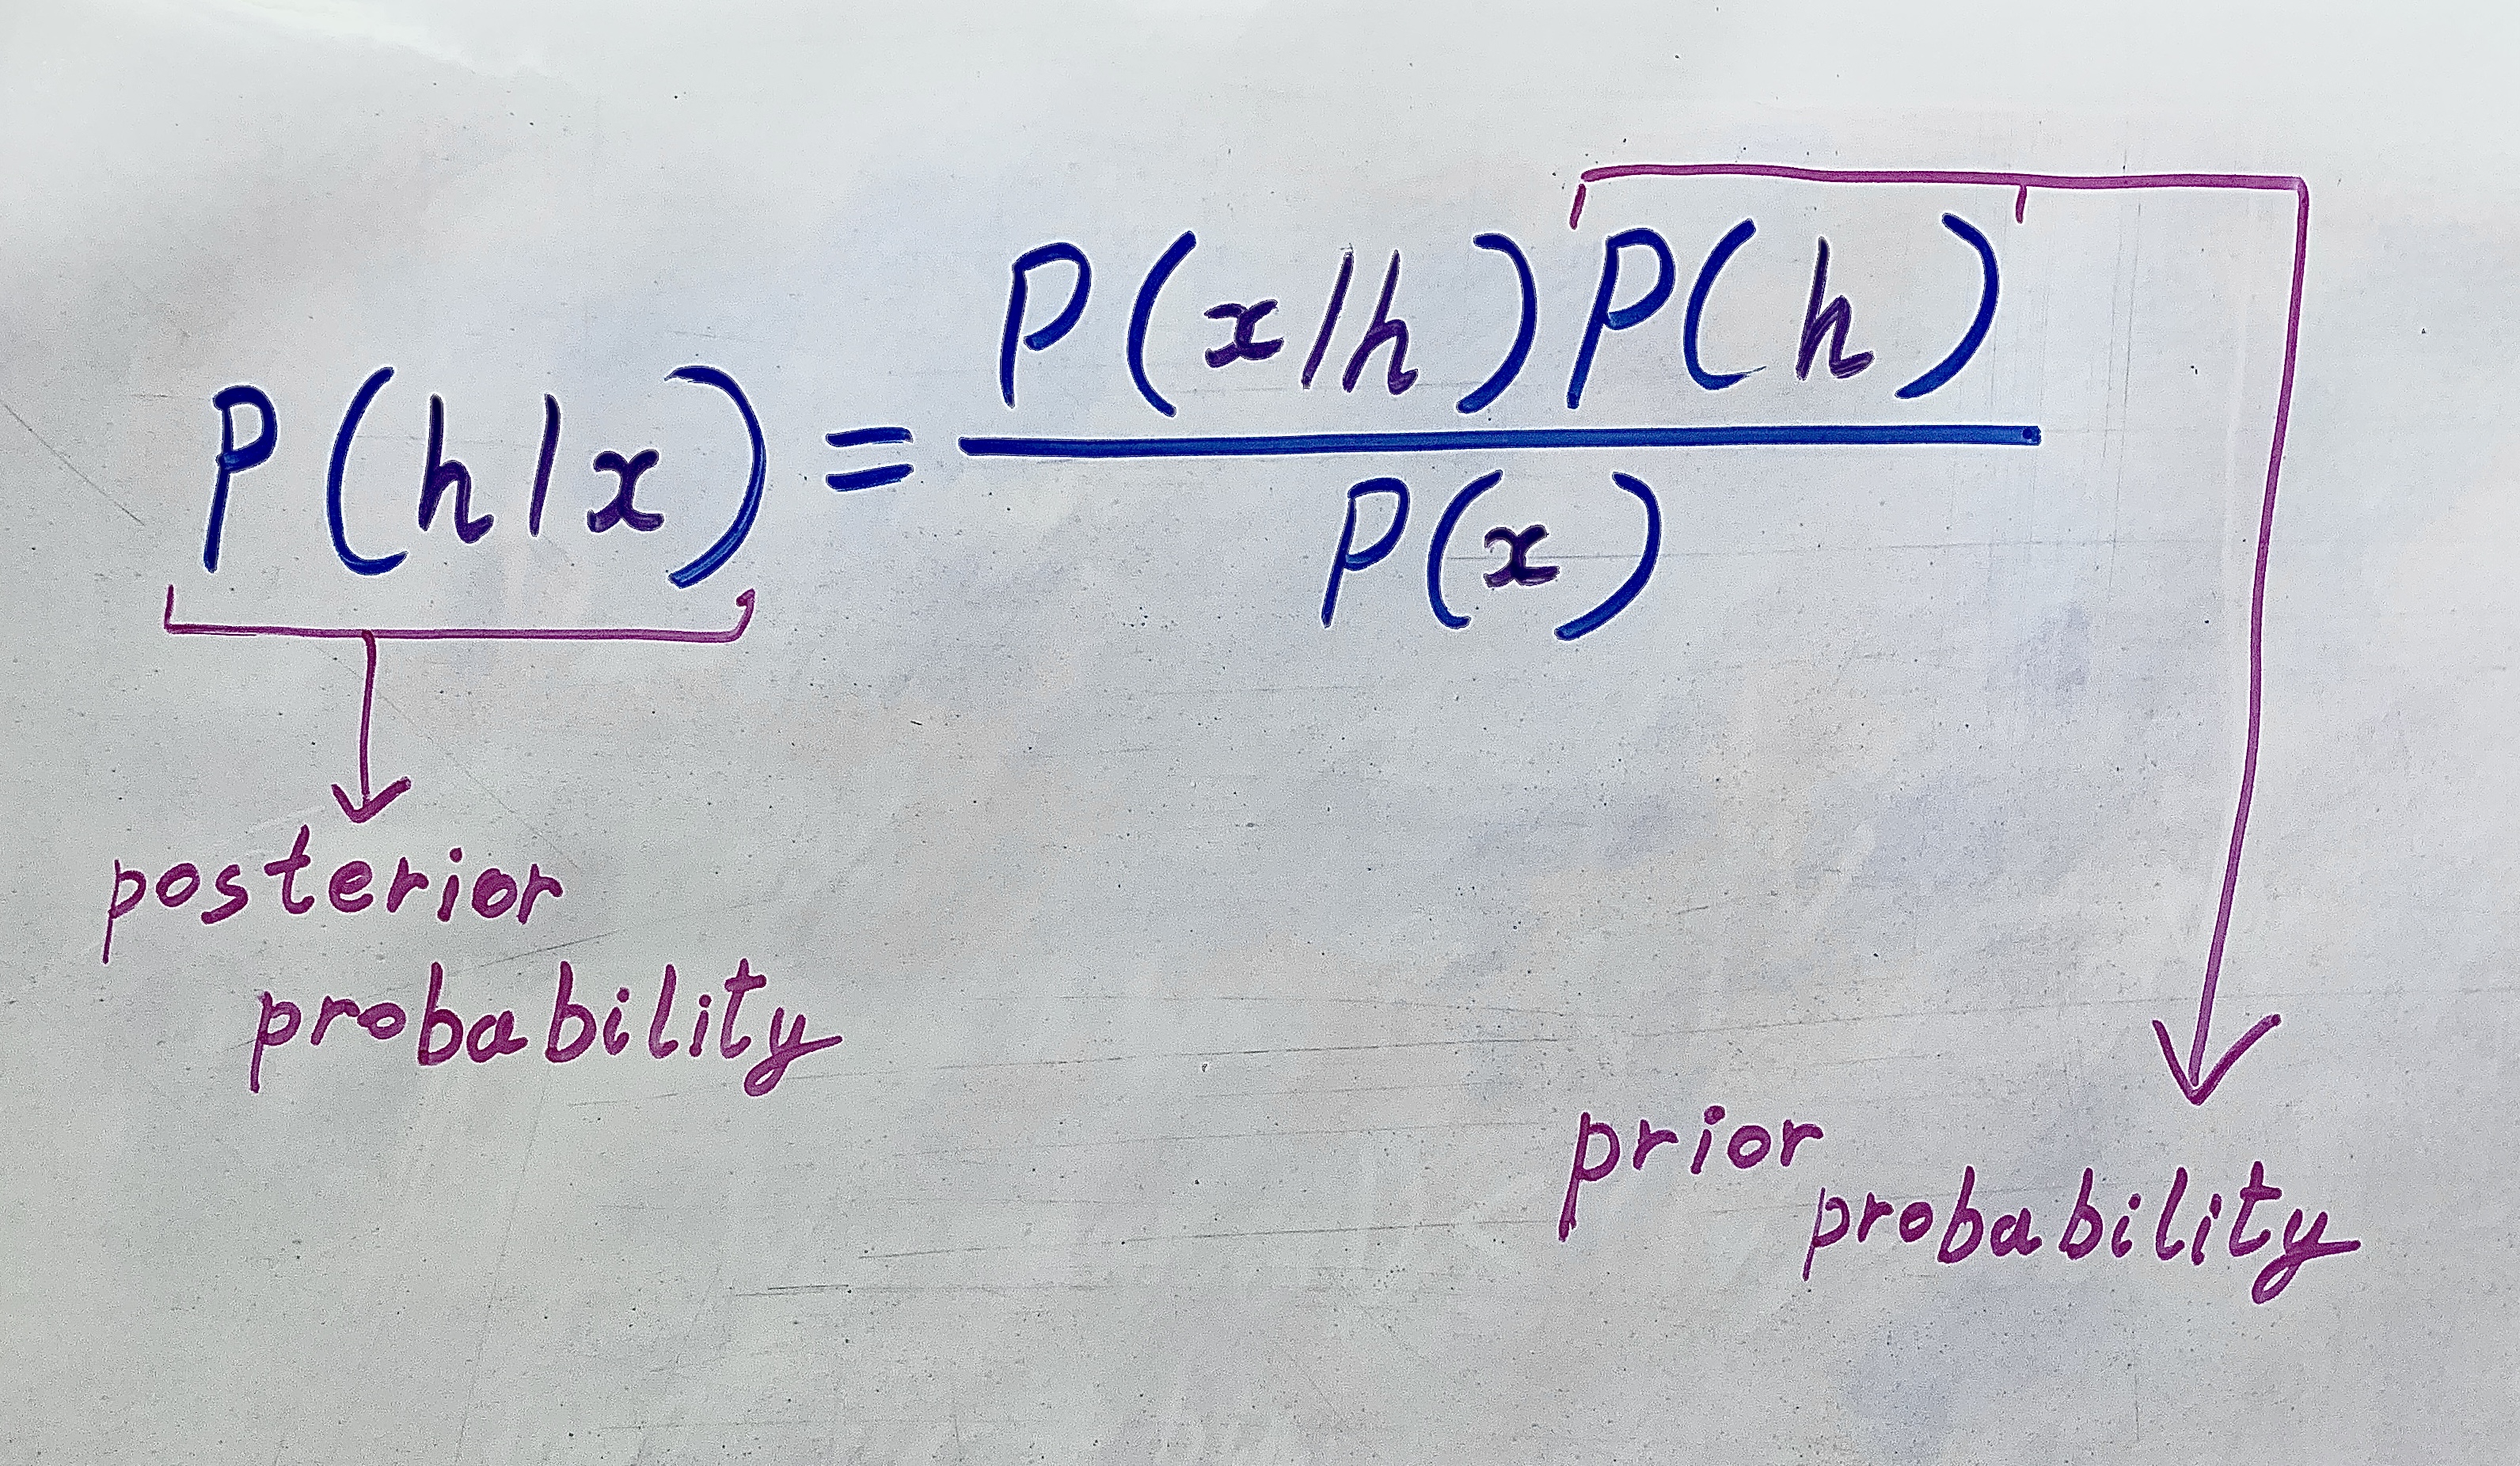 P(h|x) = P(x|h)P(h)
P(x)
posterior
probability
prior
probability